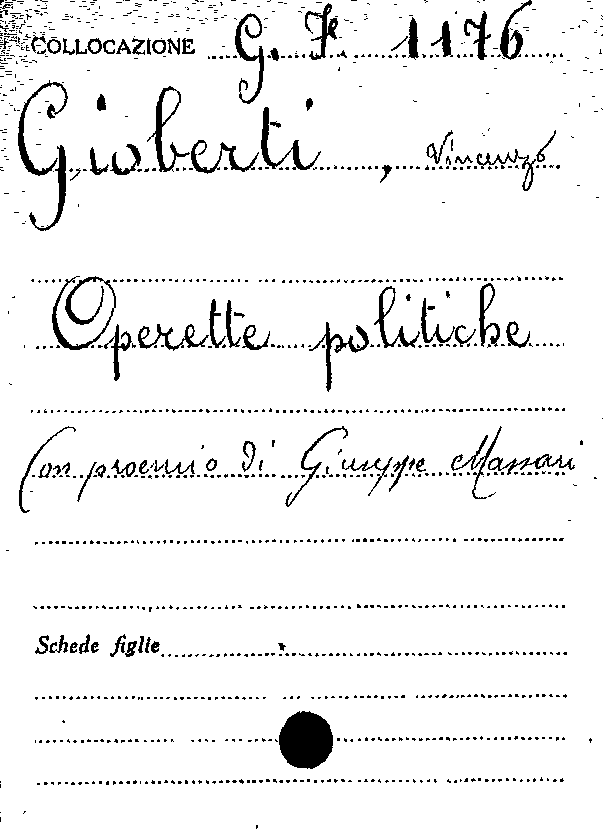 COLLOCAZIONE G. F. 1176
Gioberti, Vincenzo
Operette politiche
Con proemio di Giuseppe Massari
Schede figlie